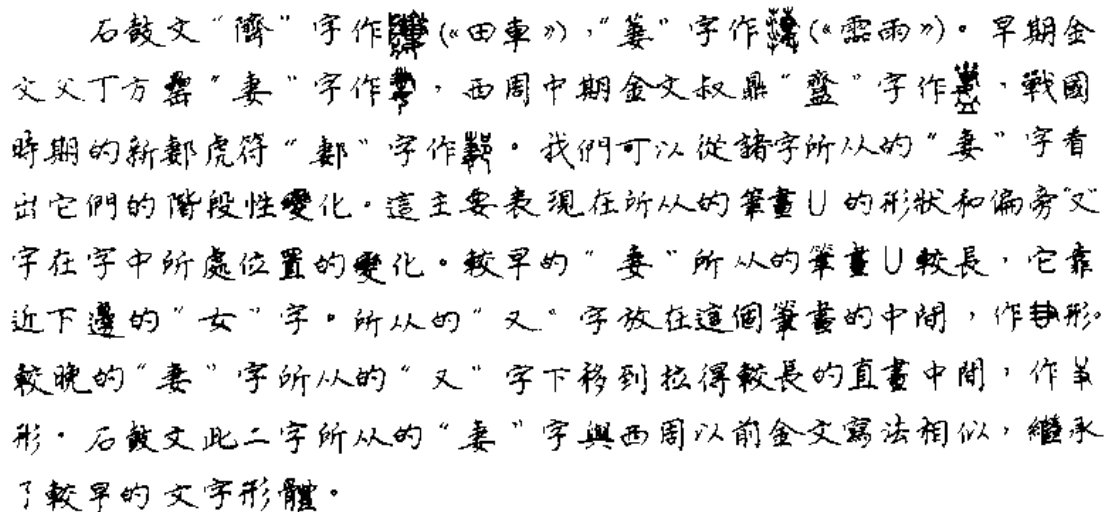 石鼓文“隮”字作(《田車》),“萋”字作(《霝雨》)。早期金
文父丁方罍“妻”字作,西周中期金文叔鼎“齍”字作,戰國
時期的新郪虎符“郪”字作。我們可以從諸字所从的“妻”字看
出它們的階段性變化。這主要表現在所从的筆畫U的形狀和偏旁“又”
字在字中所處位置的變化。較早的“妻”所从的筆畫U較長,它靠
近下邊的“女”字。所从的“又”字放在這個筆畫的中間,作形。
較晚的“妻”字所从的“又”字下移到拉得較長的直畫中間,作
形。石鼓文此二字所从的“妻”字與西周以前金文寫法相似,繼承
了較早的文字形體。